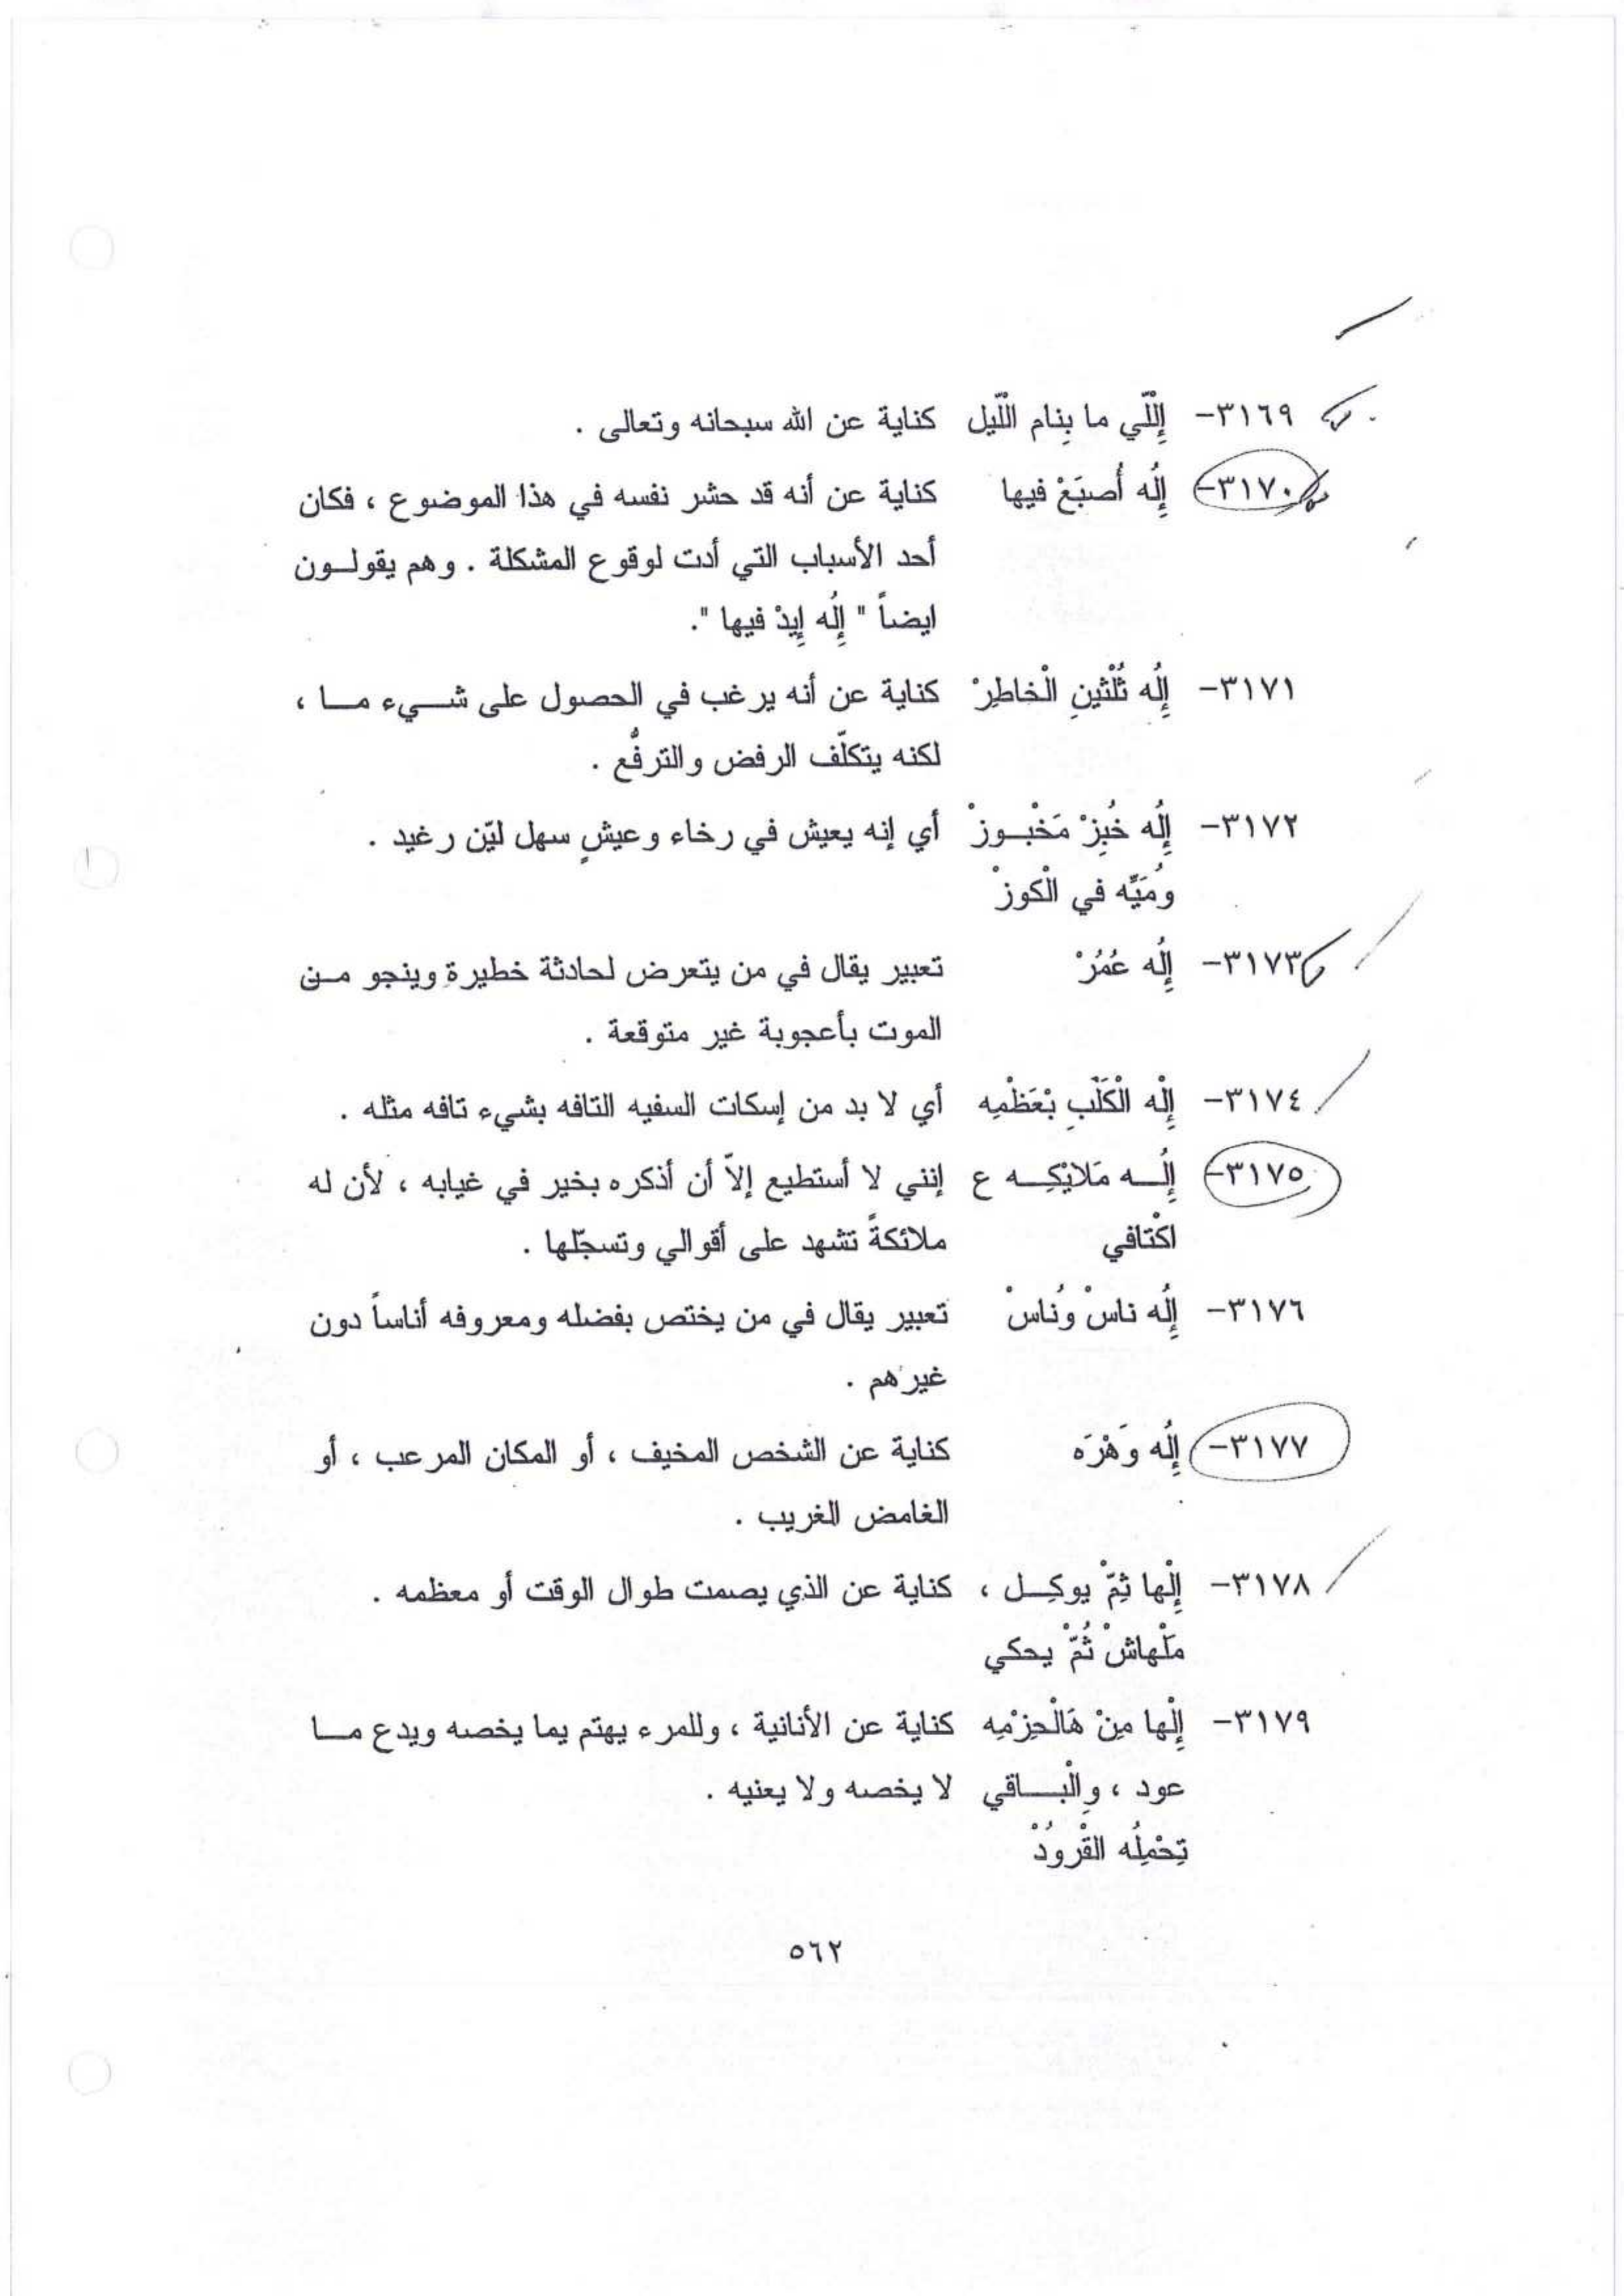 ٣١٦٩- إِللّي ما بِنام اللّيل كناية عن الله سبحانه وتعالى .
٣١٧٠- إِلُه أُصبَعْ فيها كناية عن أنه قد حشر نفسه في هذا الموضوع ، فكان
أحد الأسباب التي أدت لوقوع المشكلة . وهم يقولـون
ايضاً " إِلُه إِيدْ فيها ".
٣١٧١- إِلُه ثُلْثينِ الْخاطِرْ كناية عن أنه يرغب في الحصول على شـيء مـا ،
لكنه يتكلّف الرفض والترفُّع .
٣١٧٢- إِلُه خُبِزْ مَخْبـوزْ أي إنه يعيش في رخاء وعيشٍ سهل ليّن رغيد .
وُمَيِّه في الْكوزْ
٣١٧٣- إِلُه عُمُرْ تعبير يقال في من يتعرض لحادثة خطيرة وينجو مـن
الموت بأعجوبة غير متوقعة .
٣١٧٤- إِلْه الْكَلْبِ بْعَظْمِه أي لا بد من إسكات السفيه التافه بشيء تافه مثله .
٣١٧٥- إِلُـه مَلايْكِـه ع إنني لا أستطيع إلاّ أن أذكره بخير في غيابه ، لأن له
اكْتافي ملائكةً تشهد على أقوالي وتسجّلها .
٣١٧٦- إِلُه ناسْ وُناسْ تعبير يقال في من يختص بفضله ومعروفه أناساً دون
غيرهم .
٣١٧٧- إِلُه وَهْرَه كناية عن الشخص المخيف ، أو المكان المرعب ، أو
الغامض الغريب .
٣١٧٨- إِلْها ثِمّْ يوكِـل ، كناية عن الذي يصمت طوال الوقت أو معظمه .
مَلْهاشْ ثُمّْ يحكي
٣١٧٩- إِلْها مِنْ هَالْحِزْمِه كناية عن الأنانية ، وللمرء يهتم بما يخصه ويدع مـا
عود ، والْبـاقي لا يخصه ولا يعنيه .
تِحْمِلُه القْرودْ
٥٦٢